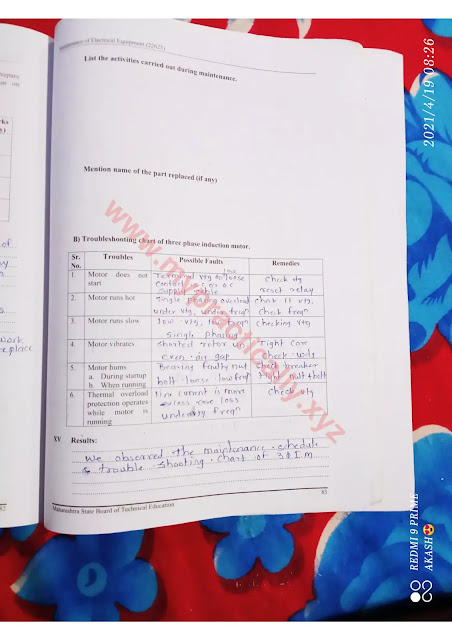 Maintenance of Electrical Equipment (22625)
List the activities carried out during maintenance.
Mention name of the part replaced (if any)
B) Troubleshooting chart of three phase induction motor.
Sr. No. Troubles Possible Faults Remedies
1. Motor does not start Terminal vtg loose contact supply cable Check vtg reset relay
2. Motor runs hot Single phase overload under vtg, under freqn check freqn
3. Motor runs slow low vtg, low freqn single phasing checking vtg
4. Motor vibrates shorted rotor un even air gap Tight
5. Motor hums a. During startup b. When running Bearing faulty nut bolt loose low freqn check breaker nut & bolt
6. Thermal overload protection operates while motor is running current is more loss freqn check vtg
XV Results:
we observed the maintenance schedule
& trouble shooting chart of 3Φ I.M.
83
Maharashtra State Board of Technical Education
www.mypractically.xyz
2021/4/19 08:26
REDMI 9 PRIME
AKASH😍
of
work
replace
82